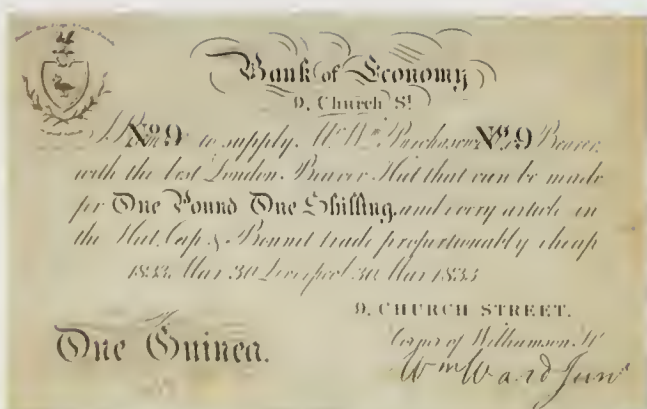 Bank of Economy
9, Church St.
I Promise to supply Mr. Wm. Purchaser or Bearer,
No. 9 No. 9
with the best London Beaver Hat that can be made
for One Pound One Shilling, and every article in
the Hat, Cap & Bonnet trade proportionably cheap
1833. Mar 30 Liverpool 30, Mar 1833
9, CHURCH STREET.
Corner of Williamson St.
One Guinea.
Wm Ward Junr